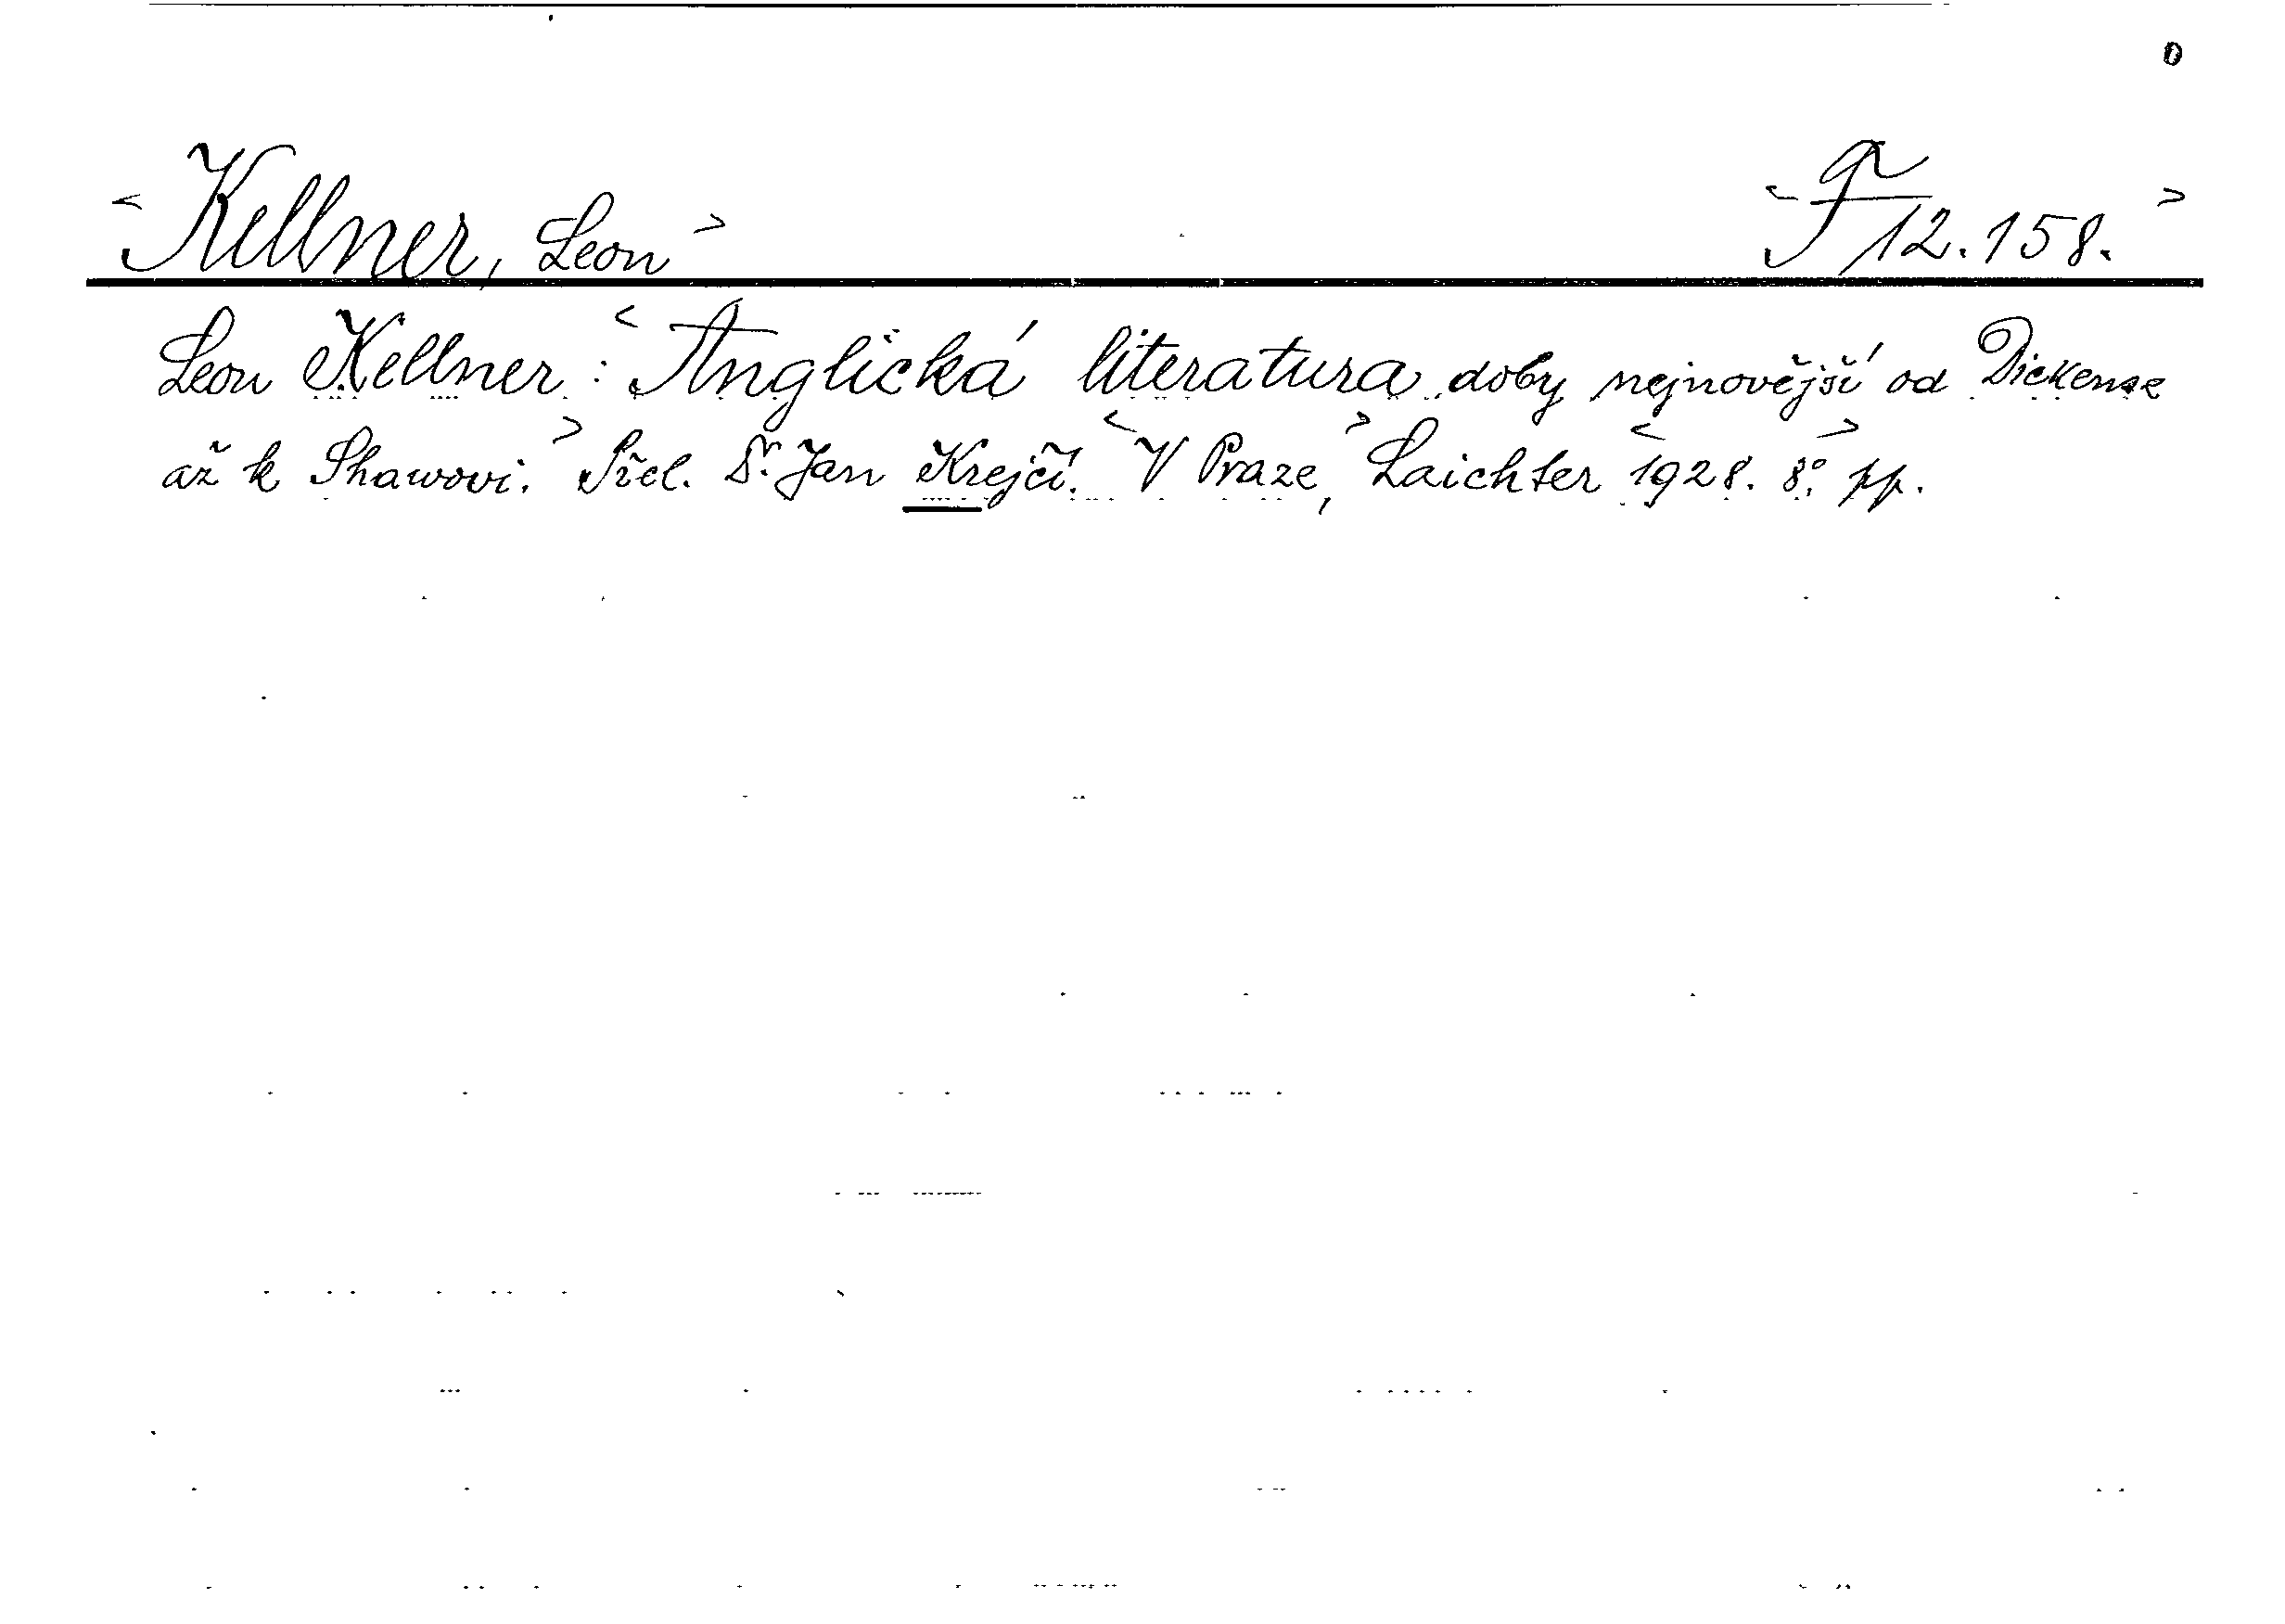 <Kellner, Leon> <F 12.158.>
Leon Kellner: <Anglická literatura doby nejnovější od Dickense
až k Shawovi.> Přel. Dr. Jan Krejčí. <V Praze,> Laichter <1928. 8°.> pp.